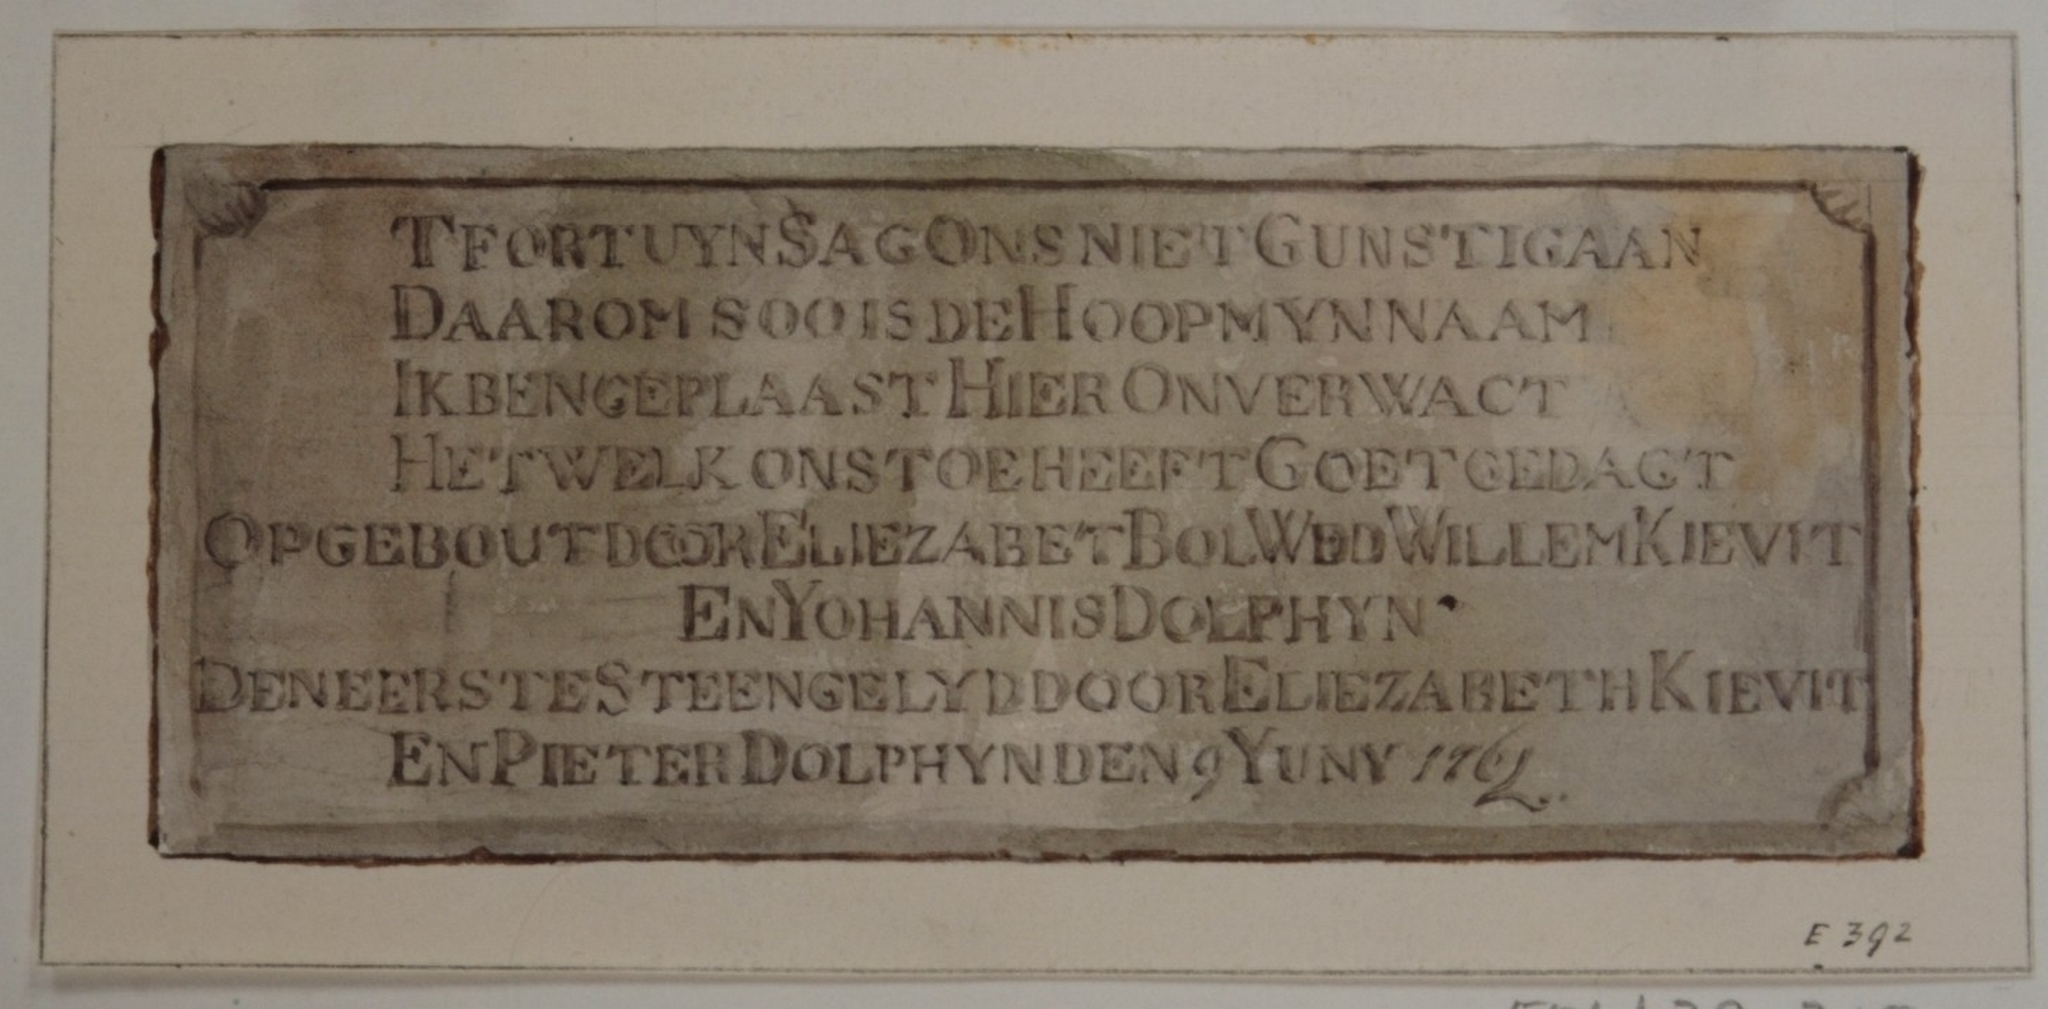 T FORTUYN SAG ONS NIET GUNSTIG AAN
DAAROM SOO IS DE HOOP MYN NAAM
IK BEN GEPLAAST HIER ONVERWACT
HET WELK ONS TOE HEEFT GOET GEDAGT
OPGEBOUT DOOR ELIEZABET BOL WED WILLEM KIEVIT
EN YOHANNIS DOLPHYN
DEN EERSTE STEEN GELYD DOOR ELIEZABETH KIEVIT
EN PIETER DOLPHYN DEN 9 YUNY 1762.
E 392